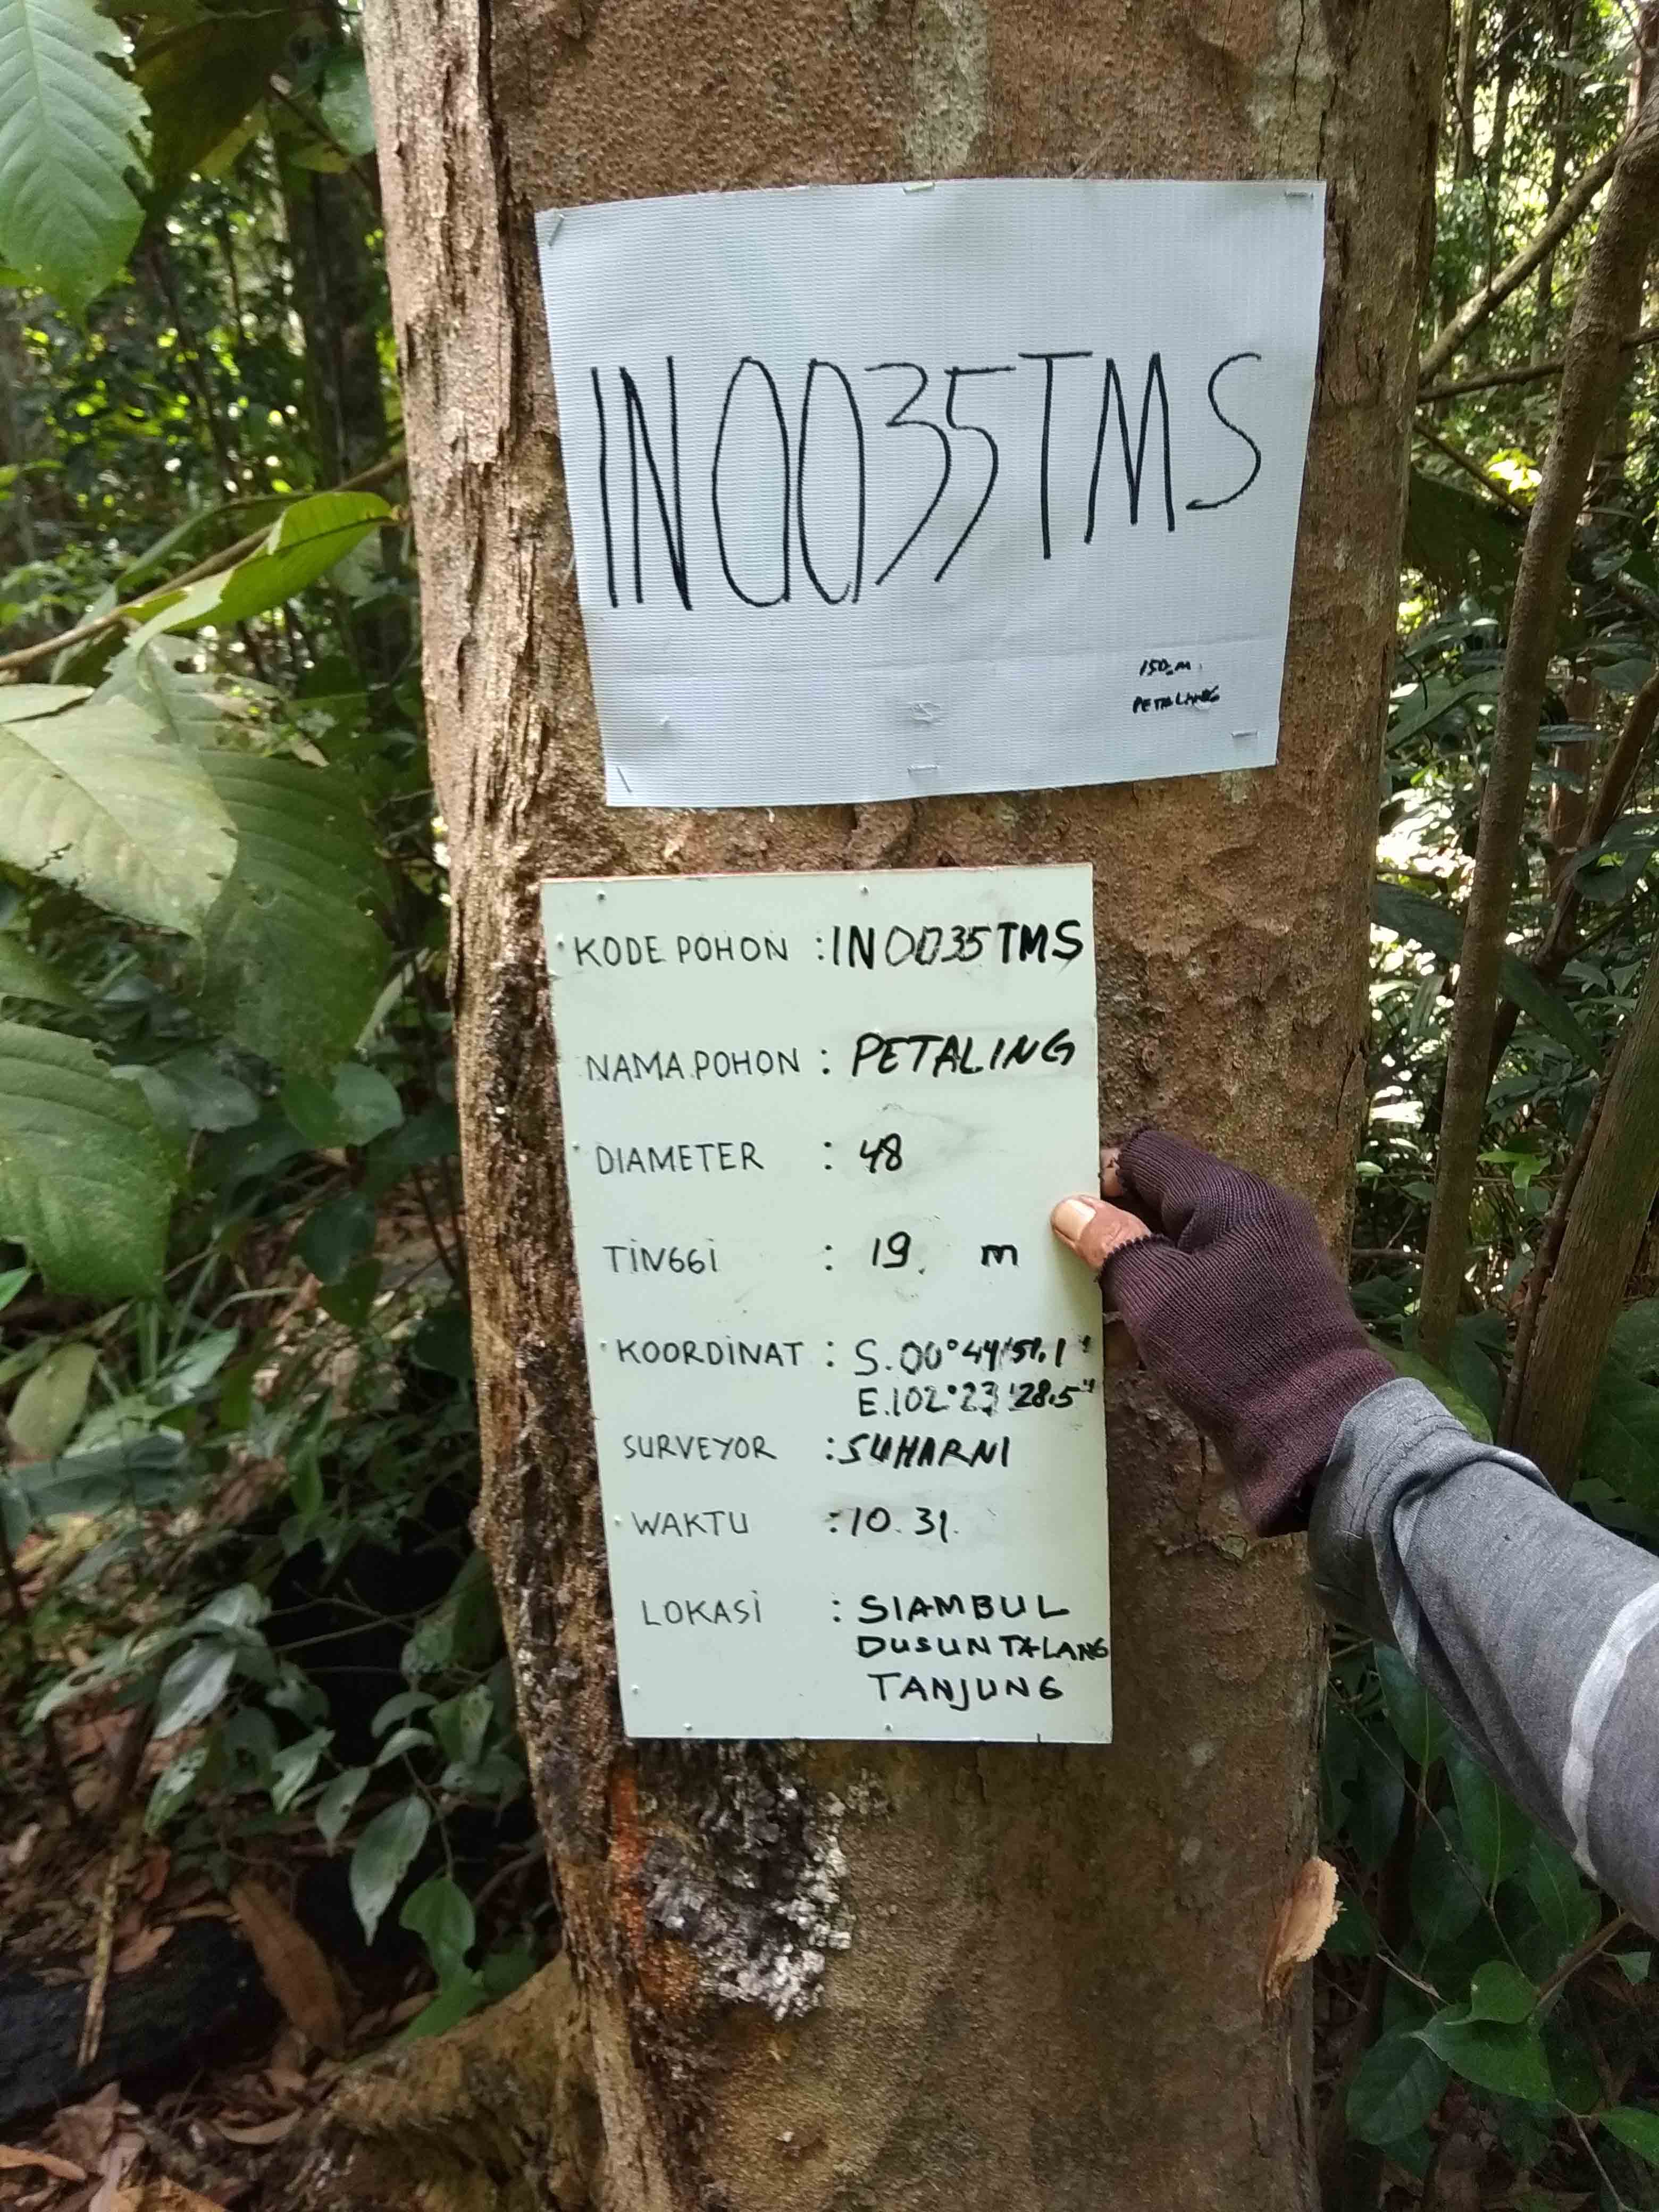 IN0035TMS
150 M
PETALANG
KODE POHON : IN0035TMS
NAMA POHON : PETALING
DIAMETER : 48
TiNGGi : 19 m
KOORDiNAT : S.00°44'51.1"
E.102°23'28.5"
SURVEYOR : SUHARNI
WAKTU : 10.31.
LOKASi : SIAMBUL
DUSUN TALANG
TANJUNG